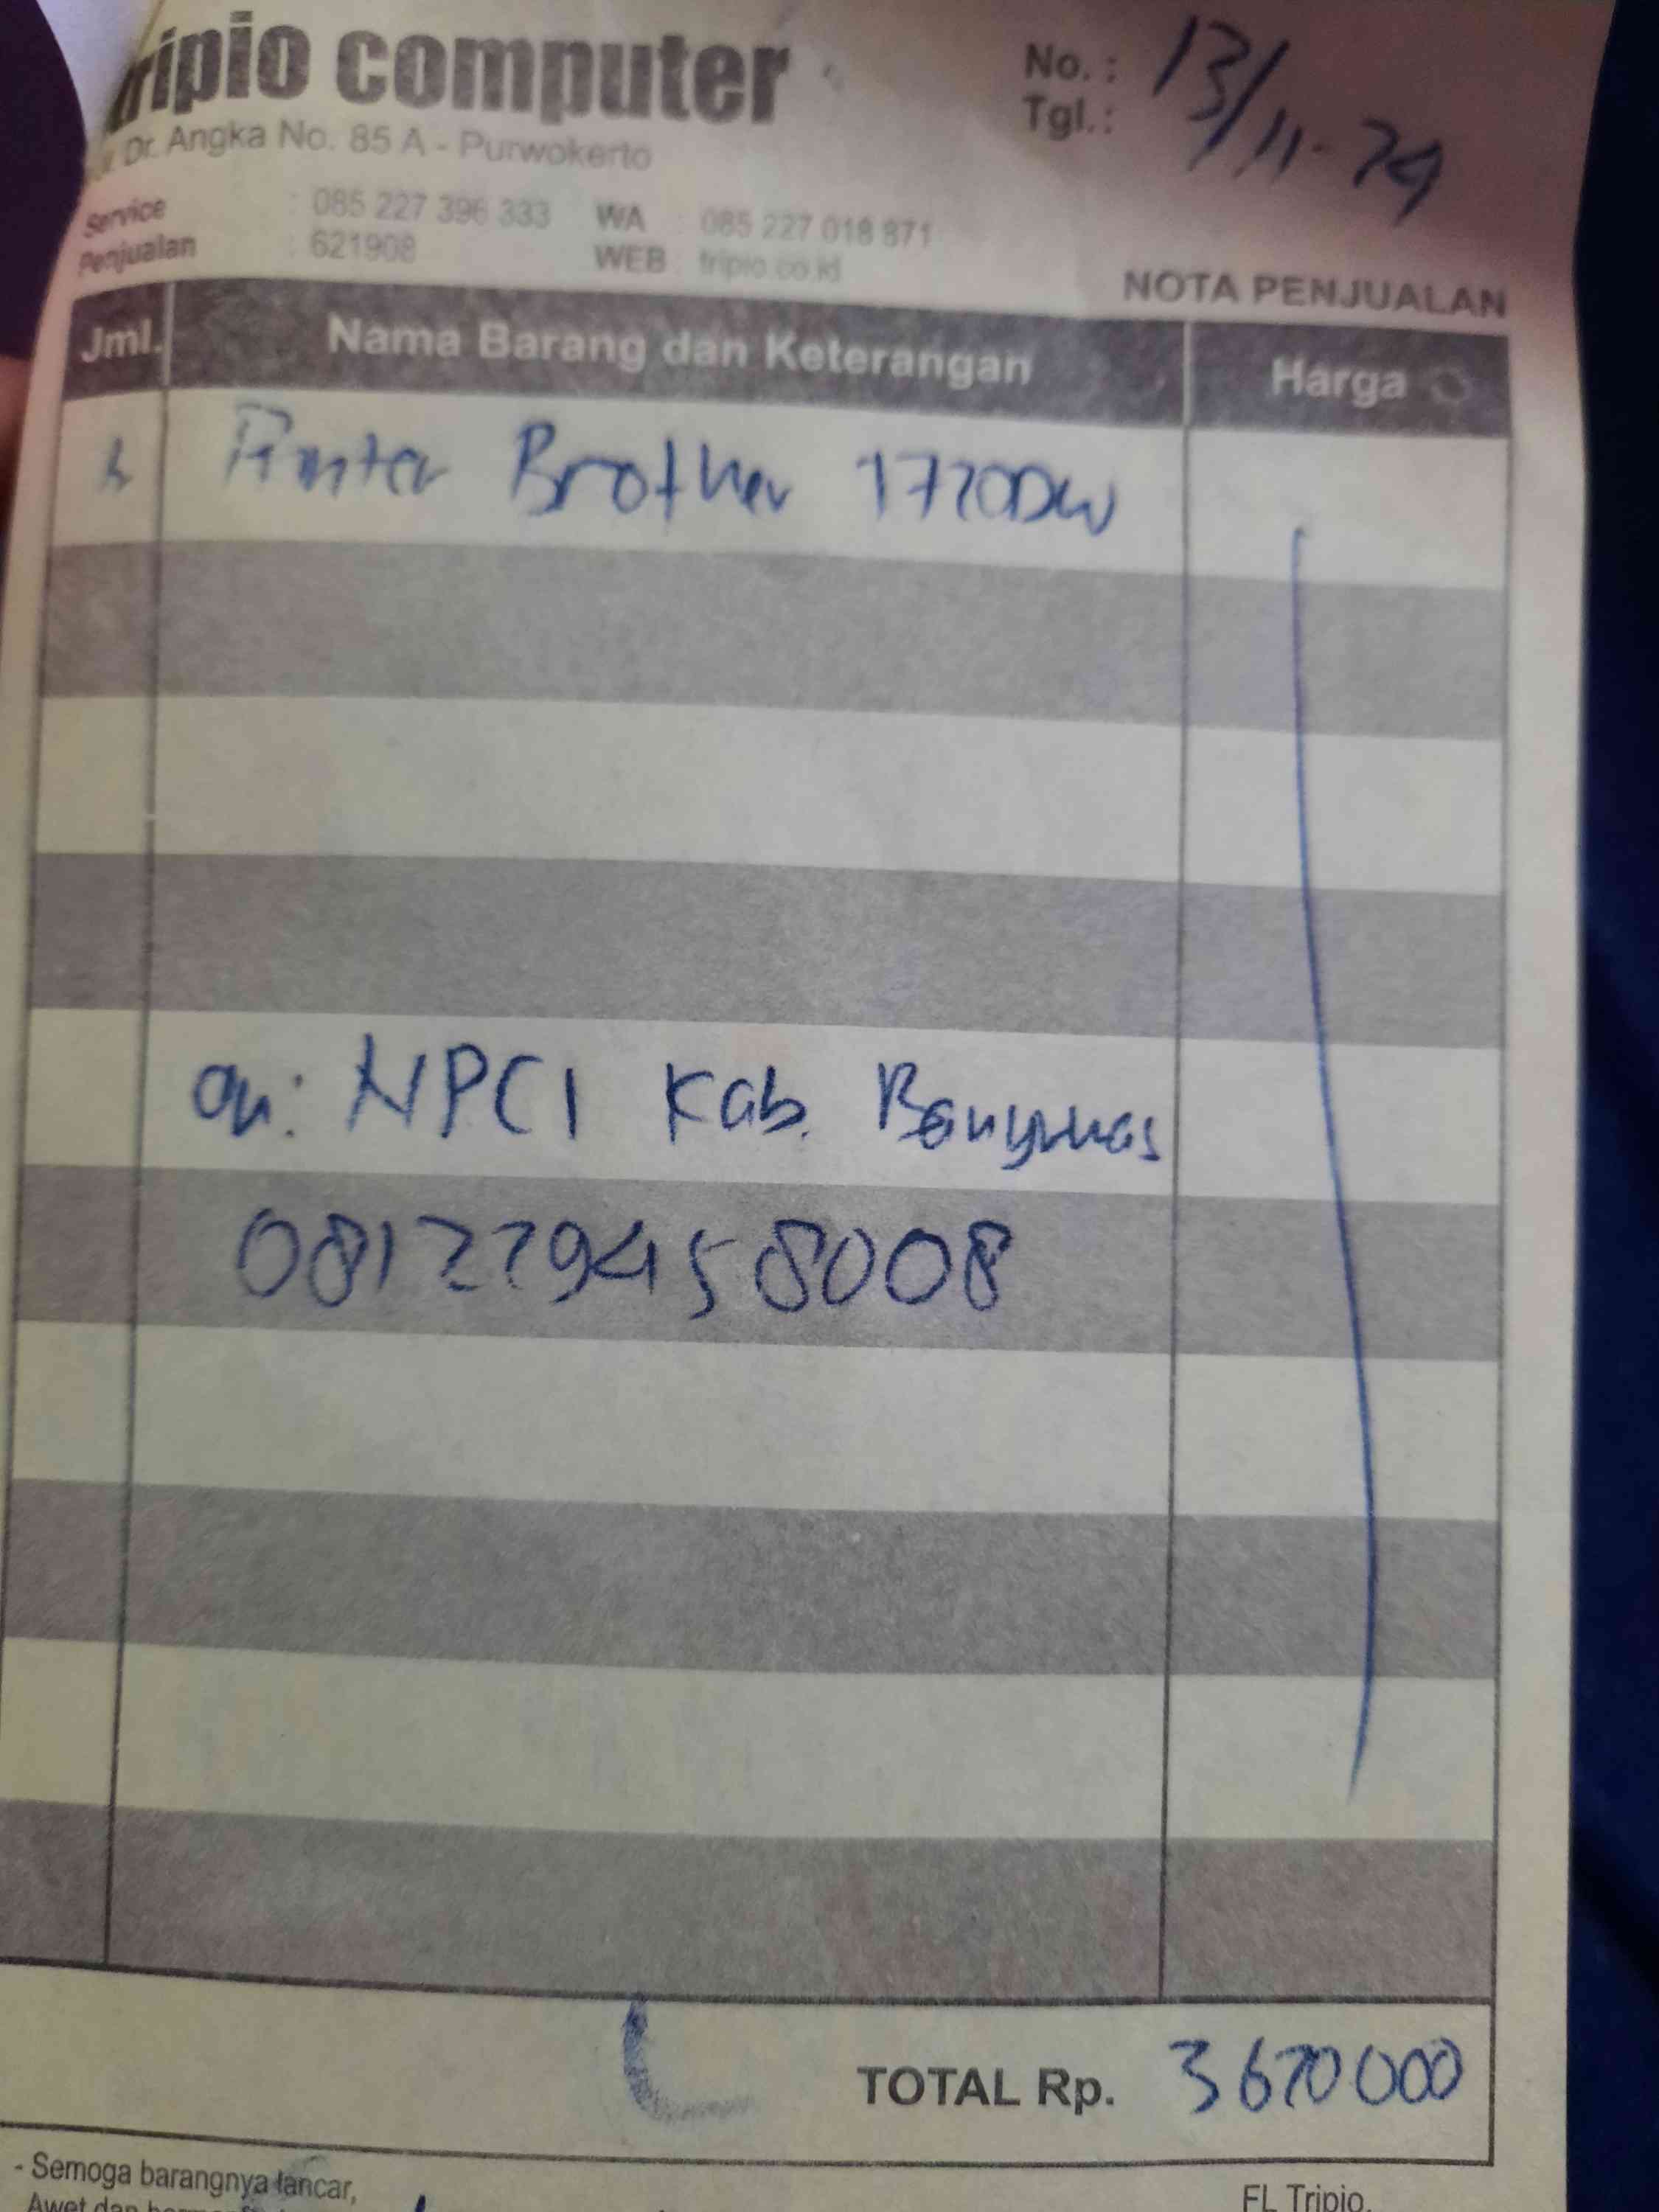 tripio computer
Dr. Angka No. 85 A - Purwokerto
No. :
Tgl. : 13/11-24
Service : 085 227 396 333 WA : 085 227 018 871
Penjualan : 621908 WEB : tripio.co.id
NOTA PENJUALAN
Jml. Nama Barang dan Keterangan Harga
1 Printer Brother T720DW
an: NPCI Kab. Banyumas
081229458008
TOTAL Rp. 3670000
- Semoga barangnya lancar,
Awet dan
FL Tripio,